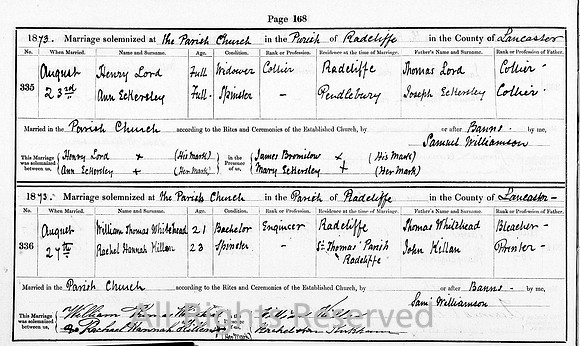 Page 168
1873. Marriage solemnized at the Parish Church in the Parish of Radcliffe in the County of Lancaster
No. When Married. Name and Surname. Age. Condition. Rank or Profession. Residence at the time of Marriage. Father's Name and Surname. Rank or Profession of Father.
335 August 23rd Henry Lord Full Widower Collier Radcliffe Thomas Lord Collier
Ann Eckersley Full Spinster - Pendlebury Joseph Eckersley Collier
Married in the Parish Church according to the Rites and Ceremonies of the Established Church, by or after Banns by me,
Samuel Williamson
This Marriage was solemnized between us, Henry Lord x (His Mark) in the Presence of us, James Bromilow x (His Mark)
Ann Eckersley x (Her Mark) Mary Eckersley x (Her Mark)
1873. Marriage solemnized at the Parish Church in the Parish of Radcliffe in the County of Lancaster
No. When Married. Name and Surname. Age. Condition. Rank or Profession. Residence at the time of Marriage. Father's Name and Surname. Rank or Profession of Father.
336 August 27th William Thomas Whitehead 21 Bachelor Engineer Radcliffe Thomas Whitehead Bleacher
Rachel Hannah Killan 23 Spinster - St Thomas' Parish Radcliffe John Killan Printer
Married in the Parish Church according to the Rites and Ceremonies of the Established Church, by or after Banns by me,
Sam Williamson
This Marriage was solemnized between us, William Thomas
Rachael Hannah (Her Mark)
All Rights Reserved